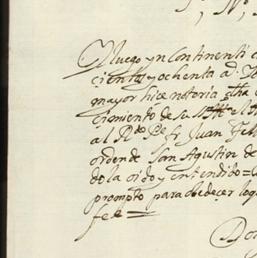 Luego yn Continenti
cientos y ochenta a
mayor hice notoria
cimiento de su
al R.do Pe fr Juan
orden de San Agustin de
dolo oido y entendido =
prompto para obedecer lo
fee =